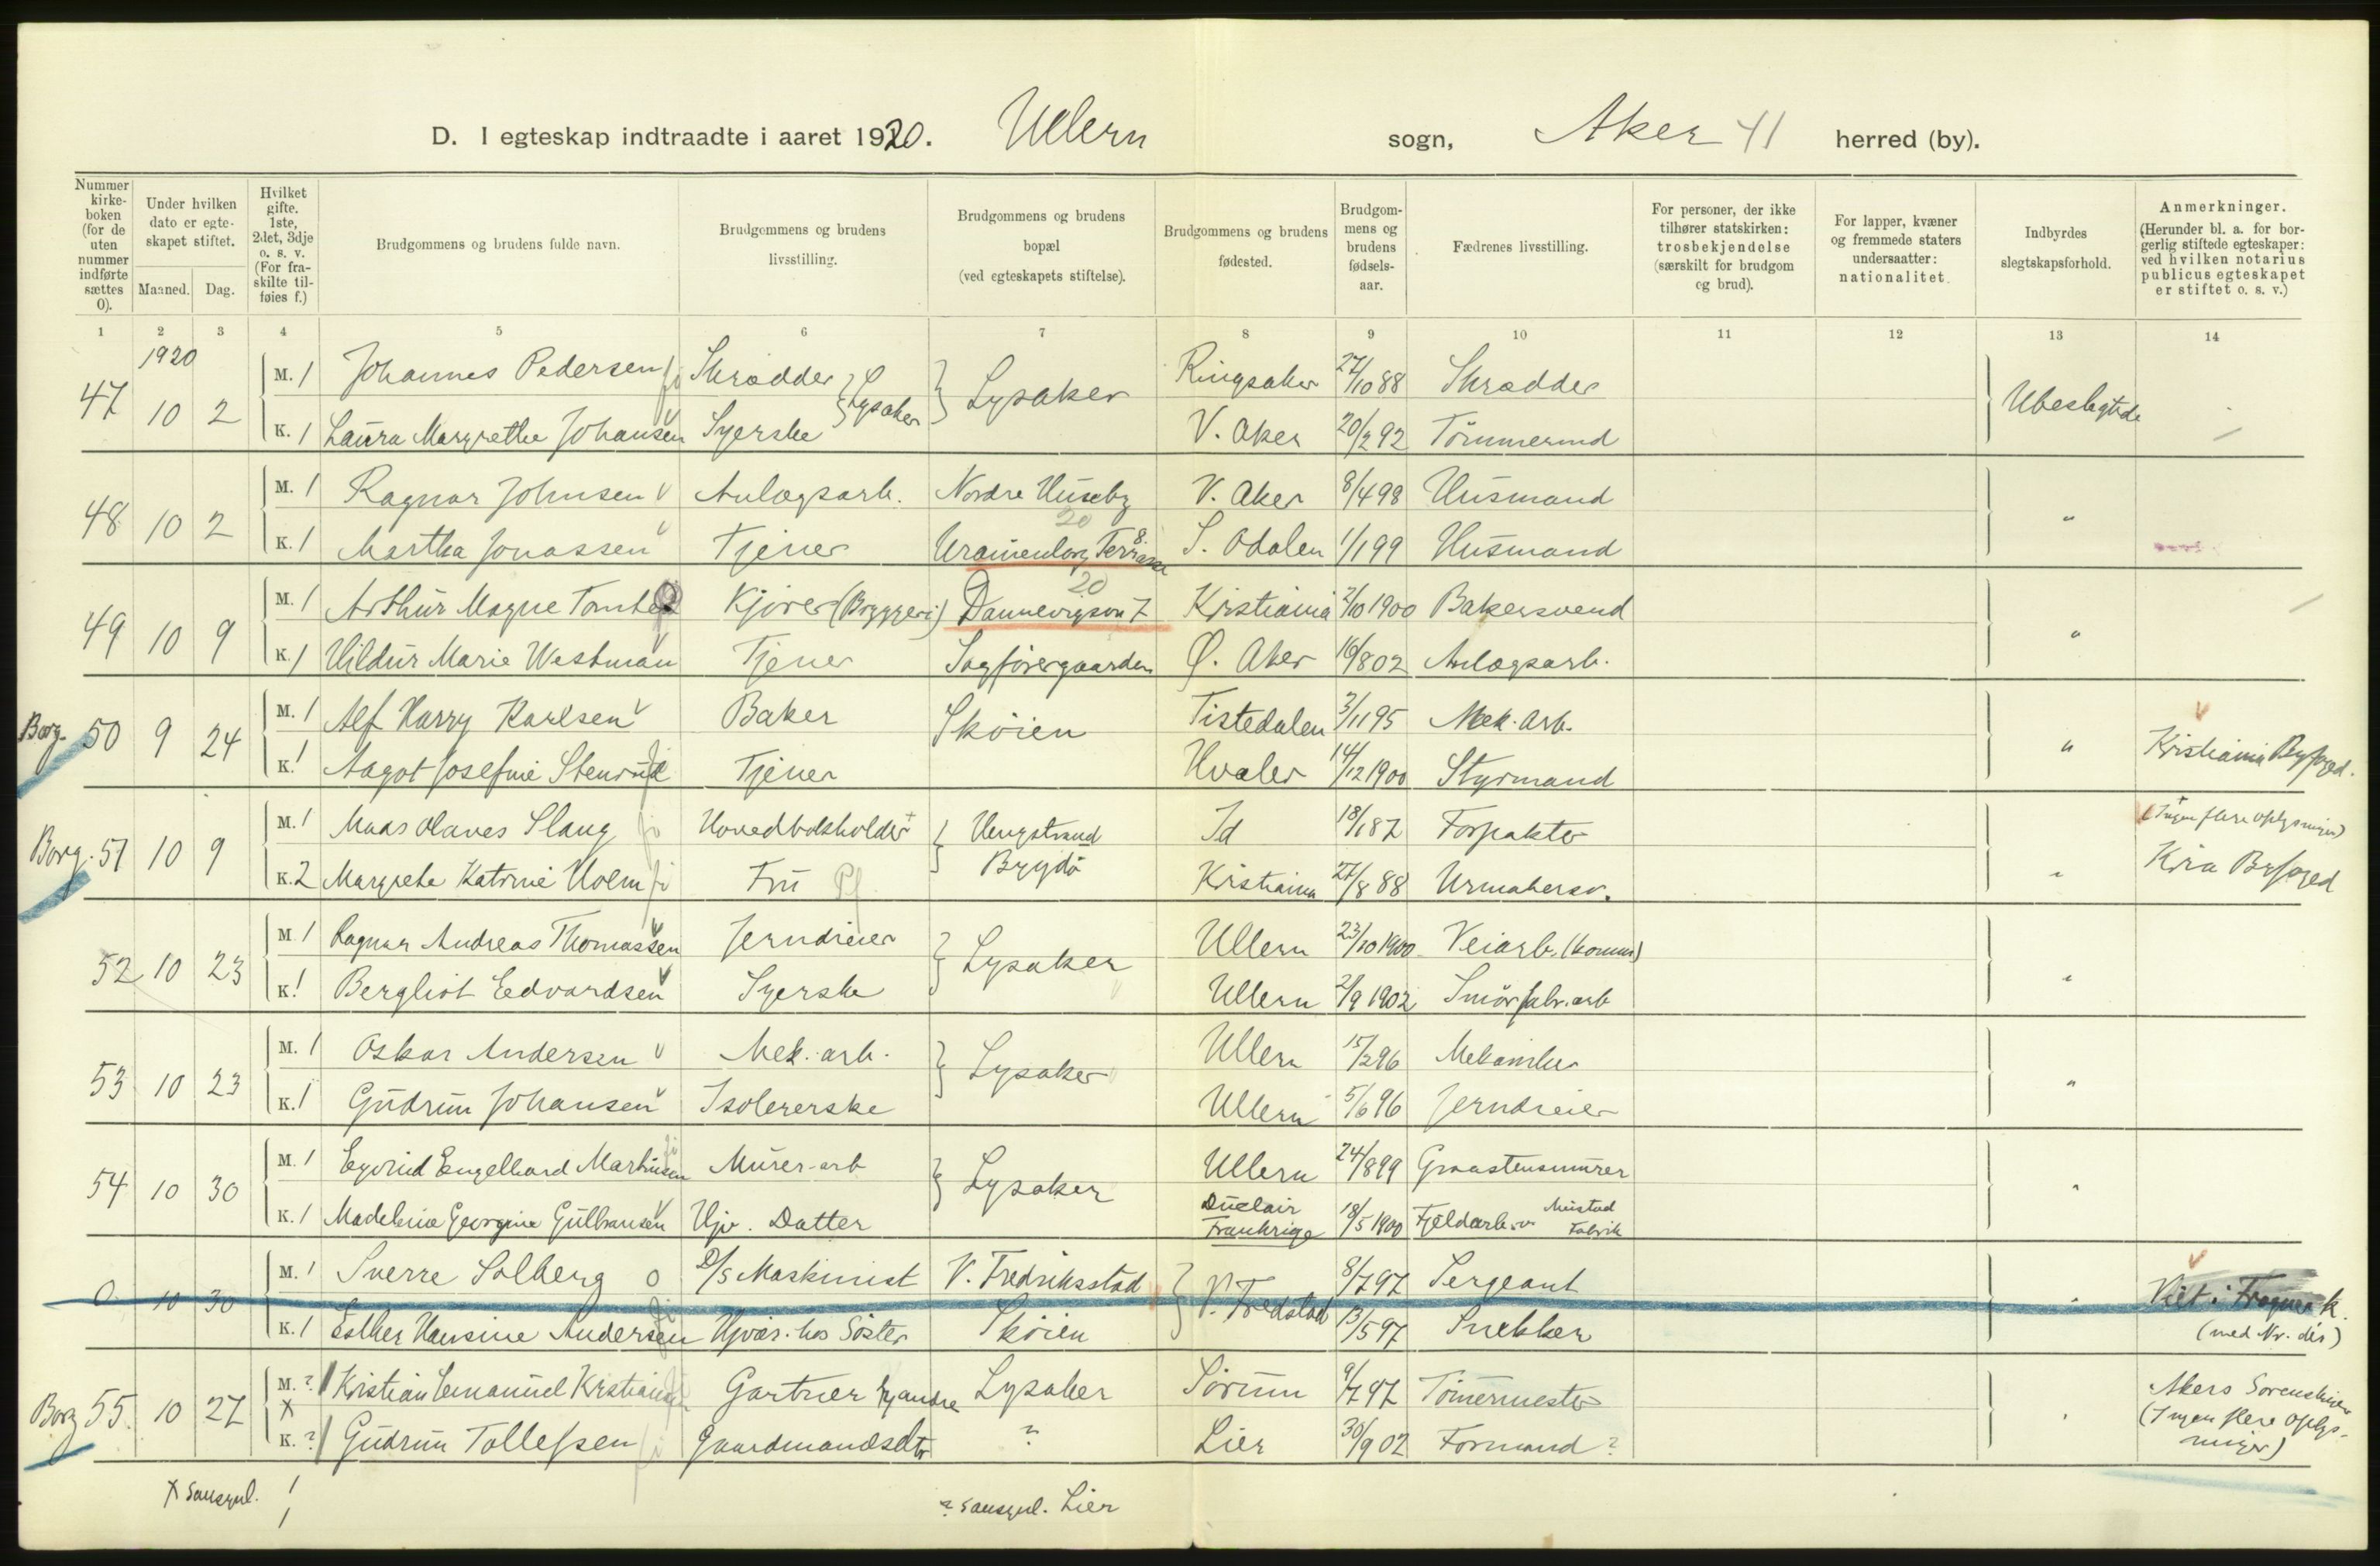 D. I egteskap indtraadte i aaret 1920. Ullern sogn, Aker 41 herred (by).
Nummer kirkeboken (for de uten nummer indførte sættes 0).
Under hvilken dato er egteskapet stiftet.
Maaned. Dag.
Hvilket gifte. 1ste, 2det, 3dje o. s. v. (For fraskilte tilføies f.)
Brudgommens og brudens fulde navn.
Brudgommens og brudens livsstilling.
Brudgommens og brudens bopæl (ved egteskapets stiftelse).
Brudgommens og brudens fødested.
Brudgommens og brudens fødselsaar.
Fædrenes livsstilling.
For personer, der ikke tilhører statskirken: trosbekjendelse (særskilt for brudgom og brud).
For lapper, kvæner og fremmede staters undersaatter: nationalitet.
Indbyrdes slegtskapsforhold.
Anmerkninger. (Herunder bl. a. for borgerlig stiftede egteskaper: ved hvilken notarius publicus egteskapet er stiftet o. s. v.)
1 2 3 4 5 6 7 8 9 10 11 12 13 14
1920
47 10 2 M. 1 Johannes Pedersen Skrædder Lysaker Lysaker Ringsaker 27/10 88 Skrædder Ubeslegtede
K. 1 Laura Margrethe Johansen Syerske V. Aker 20/2 92 Tømmermd
48 10 2 M. 1 Ragnar Johnsen Anlægsarb. Nordre Huseby V. Aker 8/4 98 Husmand "
K. 1 Martha Jonassen Tjener Uranienborg Terrasse 8. S. Odalen 1/1 99 Husmand
20
49 10 9 M. 1 Arthur Magne Kjører (Bryggeri) Dannevigsvn 7 Kristiania 2/10 1900 Bakersvend "
20
K. 1 Hildur Marie Westman Tjener Sagførergaarden Ø. Aker 16/8 02 Anlægsarb.
Borg. 50 9 24 M. 1 Alf Harry Karlsen Baker Skøien Tistedalen 3/11 95 Mek. arb. " Kristiania Byfoged.
K. 1 Aagot Josefine Stenrud Tjener Hvaler 14/12 1900 Styrmand
Borg. 51 10 9 M. 1 Maas Olaves Slang Hovedbokholder Hengstrand Bygdø Id 18/1 87 Forpakter " (Ingen flere oplysninger)
K. 2 Margrethe Katrine Holm Fru Kristiania 27/8 88 Urmakersv. Kra Byfoged
52 10 23 M. 1 Ragnar Andreas Thomassen Jerndreier Lysaker Ullern 23/10 1900 Veiarb. (komm) "
K. 1 Bergliot Edvardsen Syerske Ullern 2/9 1902 Smørfabr.arb
53 10 23 M. 1 Oskar Andersen Mek. arb. Lysaker Ullern 15/2 96 Mekaniker "
K. 1 Gudrun Johansen Isolererske Ullern 5/6 96 Jerndreier
54 10 30 M. 1 Eyvind Engelhard Martinsen Murer-arb Lysaker Ullern 24/8 99 Graastensmurer "
K. 1 Madeleine Georgine Gulbransen Hjv. Datter Duclair Frankrige 18/5 1900 Fjeldarb. Mustad Fabrik
0 10 30 M. 1 Sverre Solberg D/S Maskinist V. Fredriksstad V. Fredstad 8/7 97 Sergeant " Viet i Frogner k.
K. 1 Esther Hansine Andersen Hjvær. hos Søster Skøien 13/5 97 Snekker (med Nr. dér)
Borg 55 10 27 M. ? 1 Kristian Emanuel Kristiansen Gartner hj andre Lysaker Sørum 9/7 97 Tømermester " Akers Sorenskriver
K. ? 1 Gudrun Tollefsen Gaardmandsdtr ? Lier 30/9 02 Formand ? (Ingen flere oplysninger)
x sansynl. 1
1
? sansynl. Lier